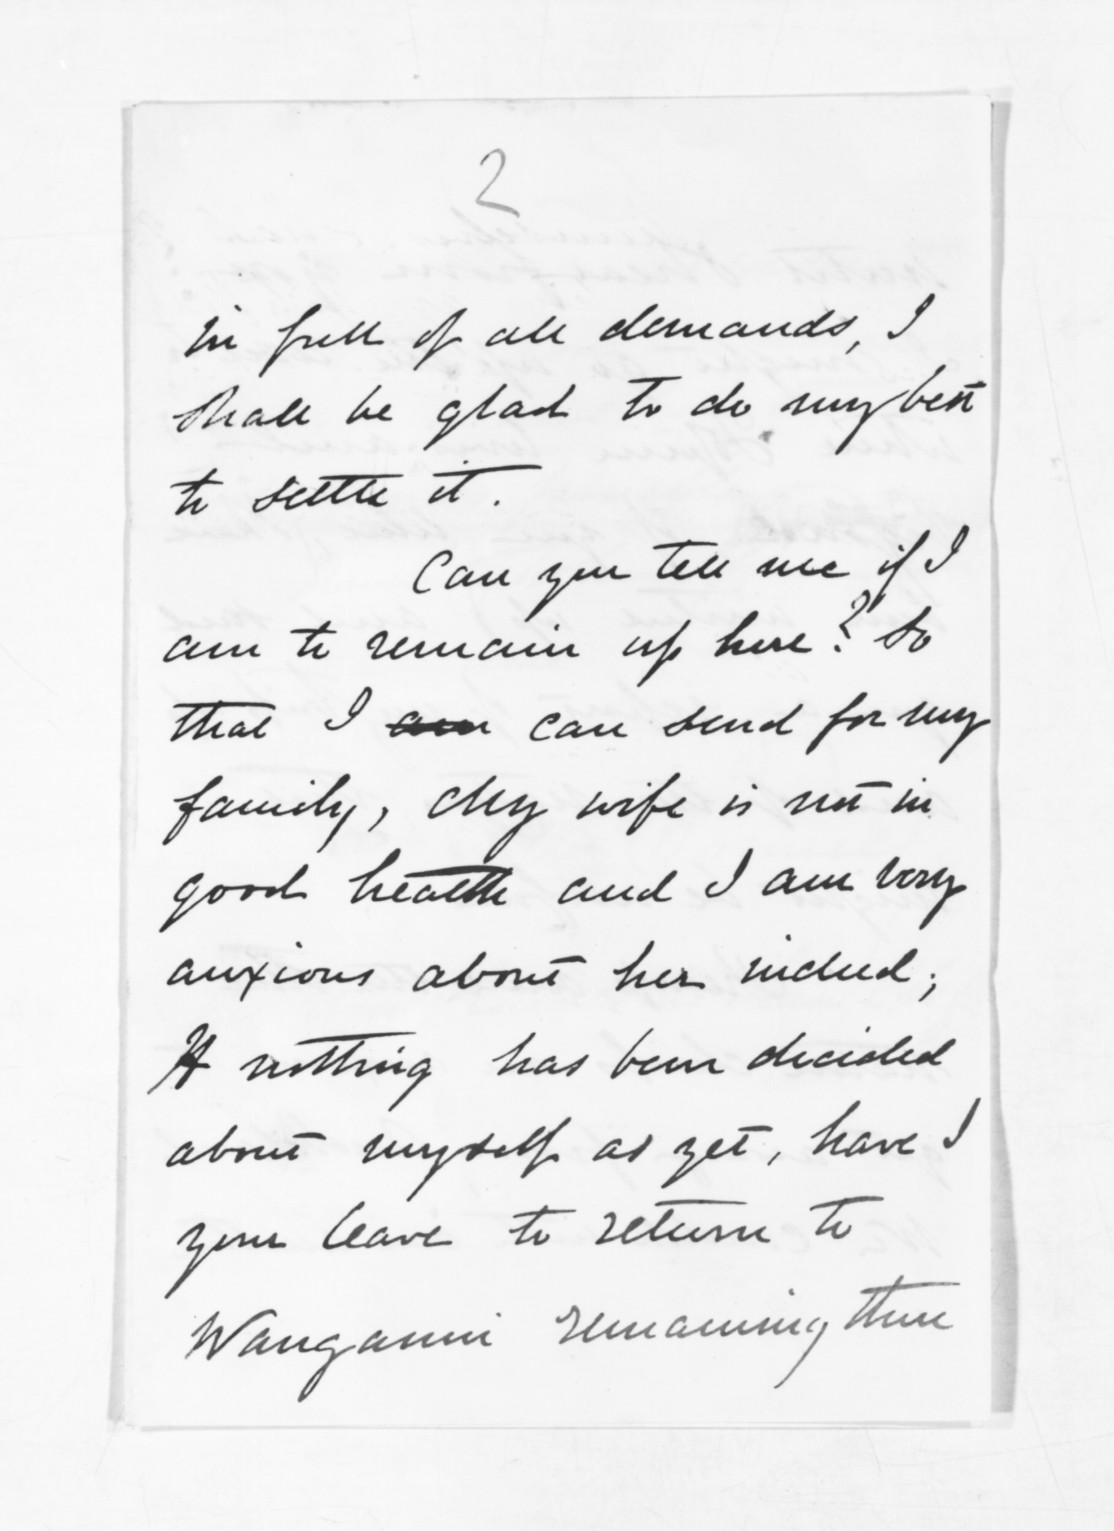 2
in full of all demands, I
shall be glad to do my best
to settle it.
Can you tell me if I
am to remain up here? So
that I am can send for my
family, My wife is not in
good health and I am very
anxious about her indeed;
If nothing has been decided
about myself as yet, have I
your leave to return to
Wanganui remaining there